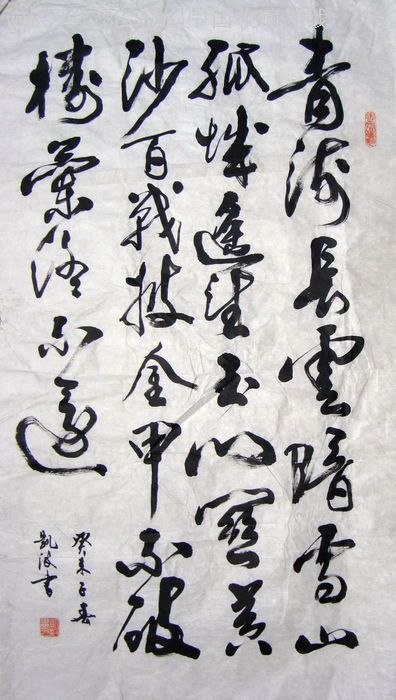 青海長雲暗雪山
孤城遙望玉門關黃
沙百戰披金甲不破
樓蘭終不還
癸未春
凱波書